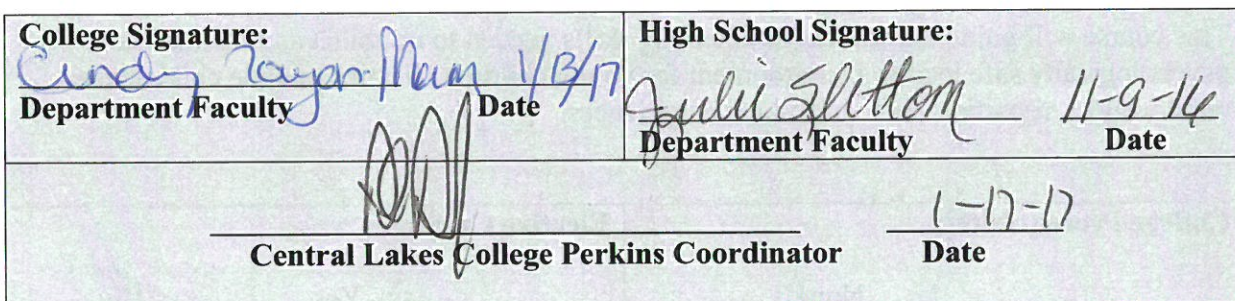 College Signature:
Cindy 1/13/17
Department Faculty Date
High School Signature:
Julie 11-9-16
Department Faculty Date
1-17-17
Central Lakes College Perkins Coordinator Date